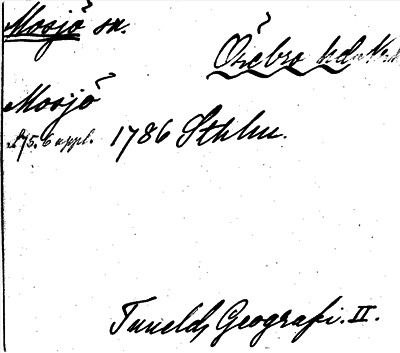 Mosjö sn.
Örebro hd Nke
Mosjö
s. 175. 6 uppl. 1786 Sthlm.
Tunelds Geografi. II.